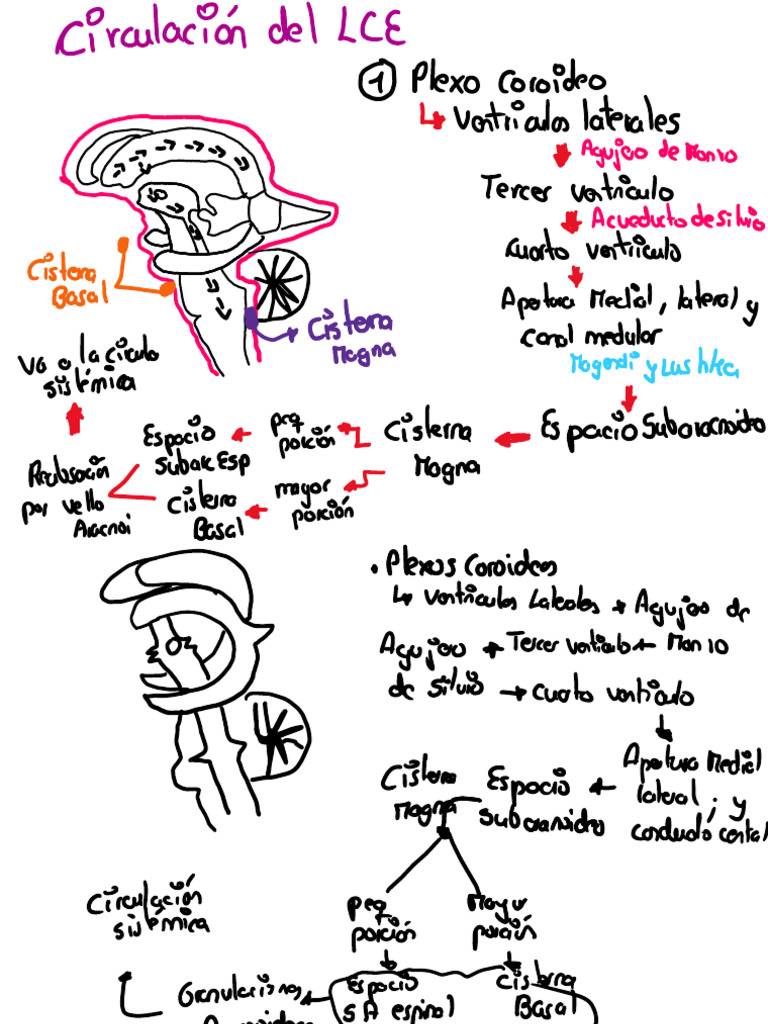 Circulación del LCE
① Plexo coroideo
Ventriculos laterales
Agujero de Monro
Tercer ventriculo
Acueducto de Silvio
Cuarto ventriculo
Apertura Medial, lateral y
canal medular
Magendi y Lushka
Espacio Subaracnoideo
Cisterna
Basal
Cisterna
Magna
Va a la circulo
sistémica
Absorción
por vello
Aracnoi
Espacio
Subarc Esp
Cisterna
Basal
peq
porción
mayor
porción
Cisterna
Magna
• Plexos Coroideos
Ventriculos Laterales → Agujero de
Agujero ← Tercer ventriculo ← Monro
de Silvio → Cuarto ventriculo
Apertura Medial
lateral; y
conducto central
Espacio
Subaracnoideo
Cisterna
Magna
peq
porción
Mayor
porción
Espacio
SA espinal
Cisterna
Basal
Granulaciones
Circulación
sistémica